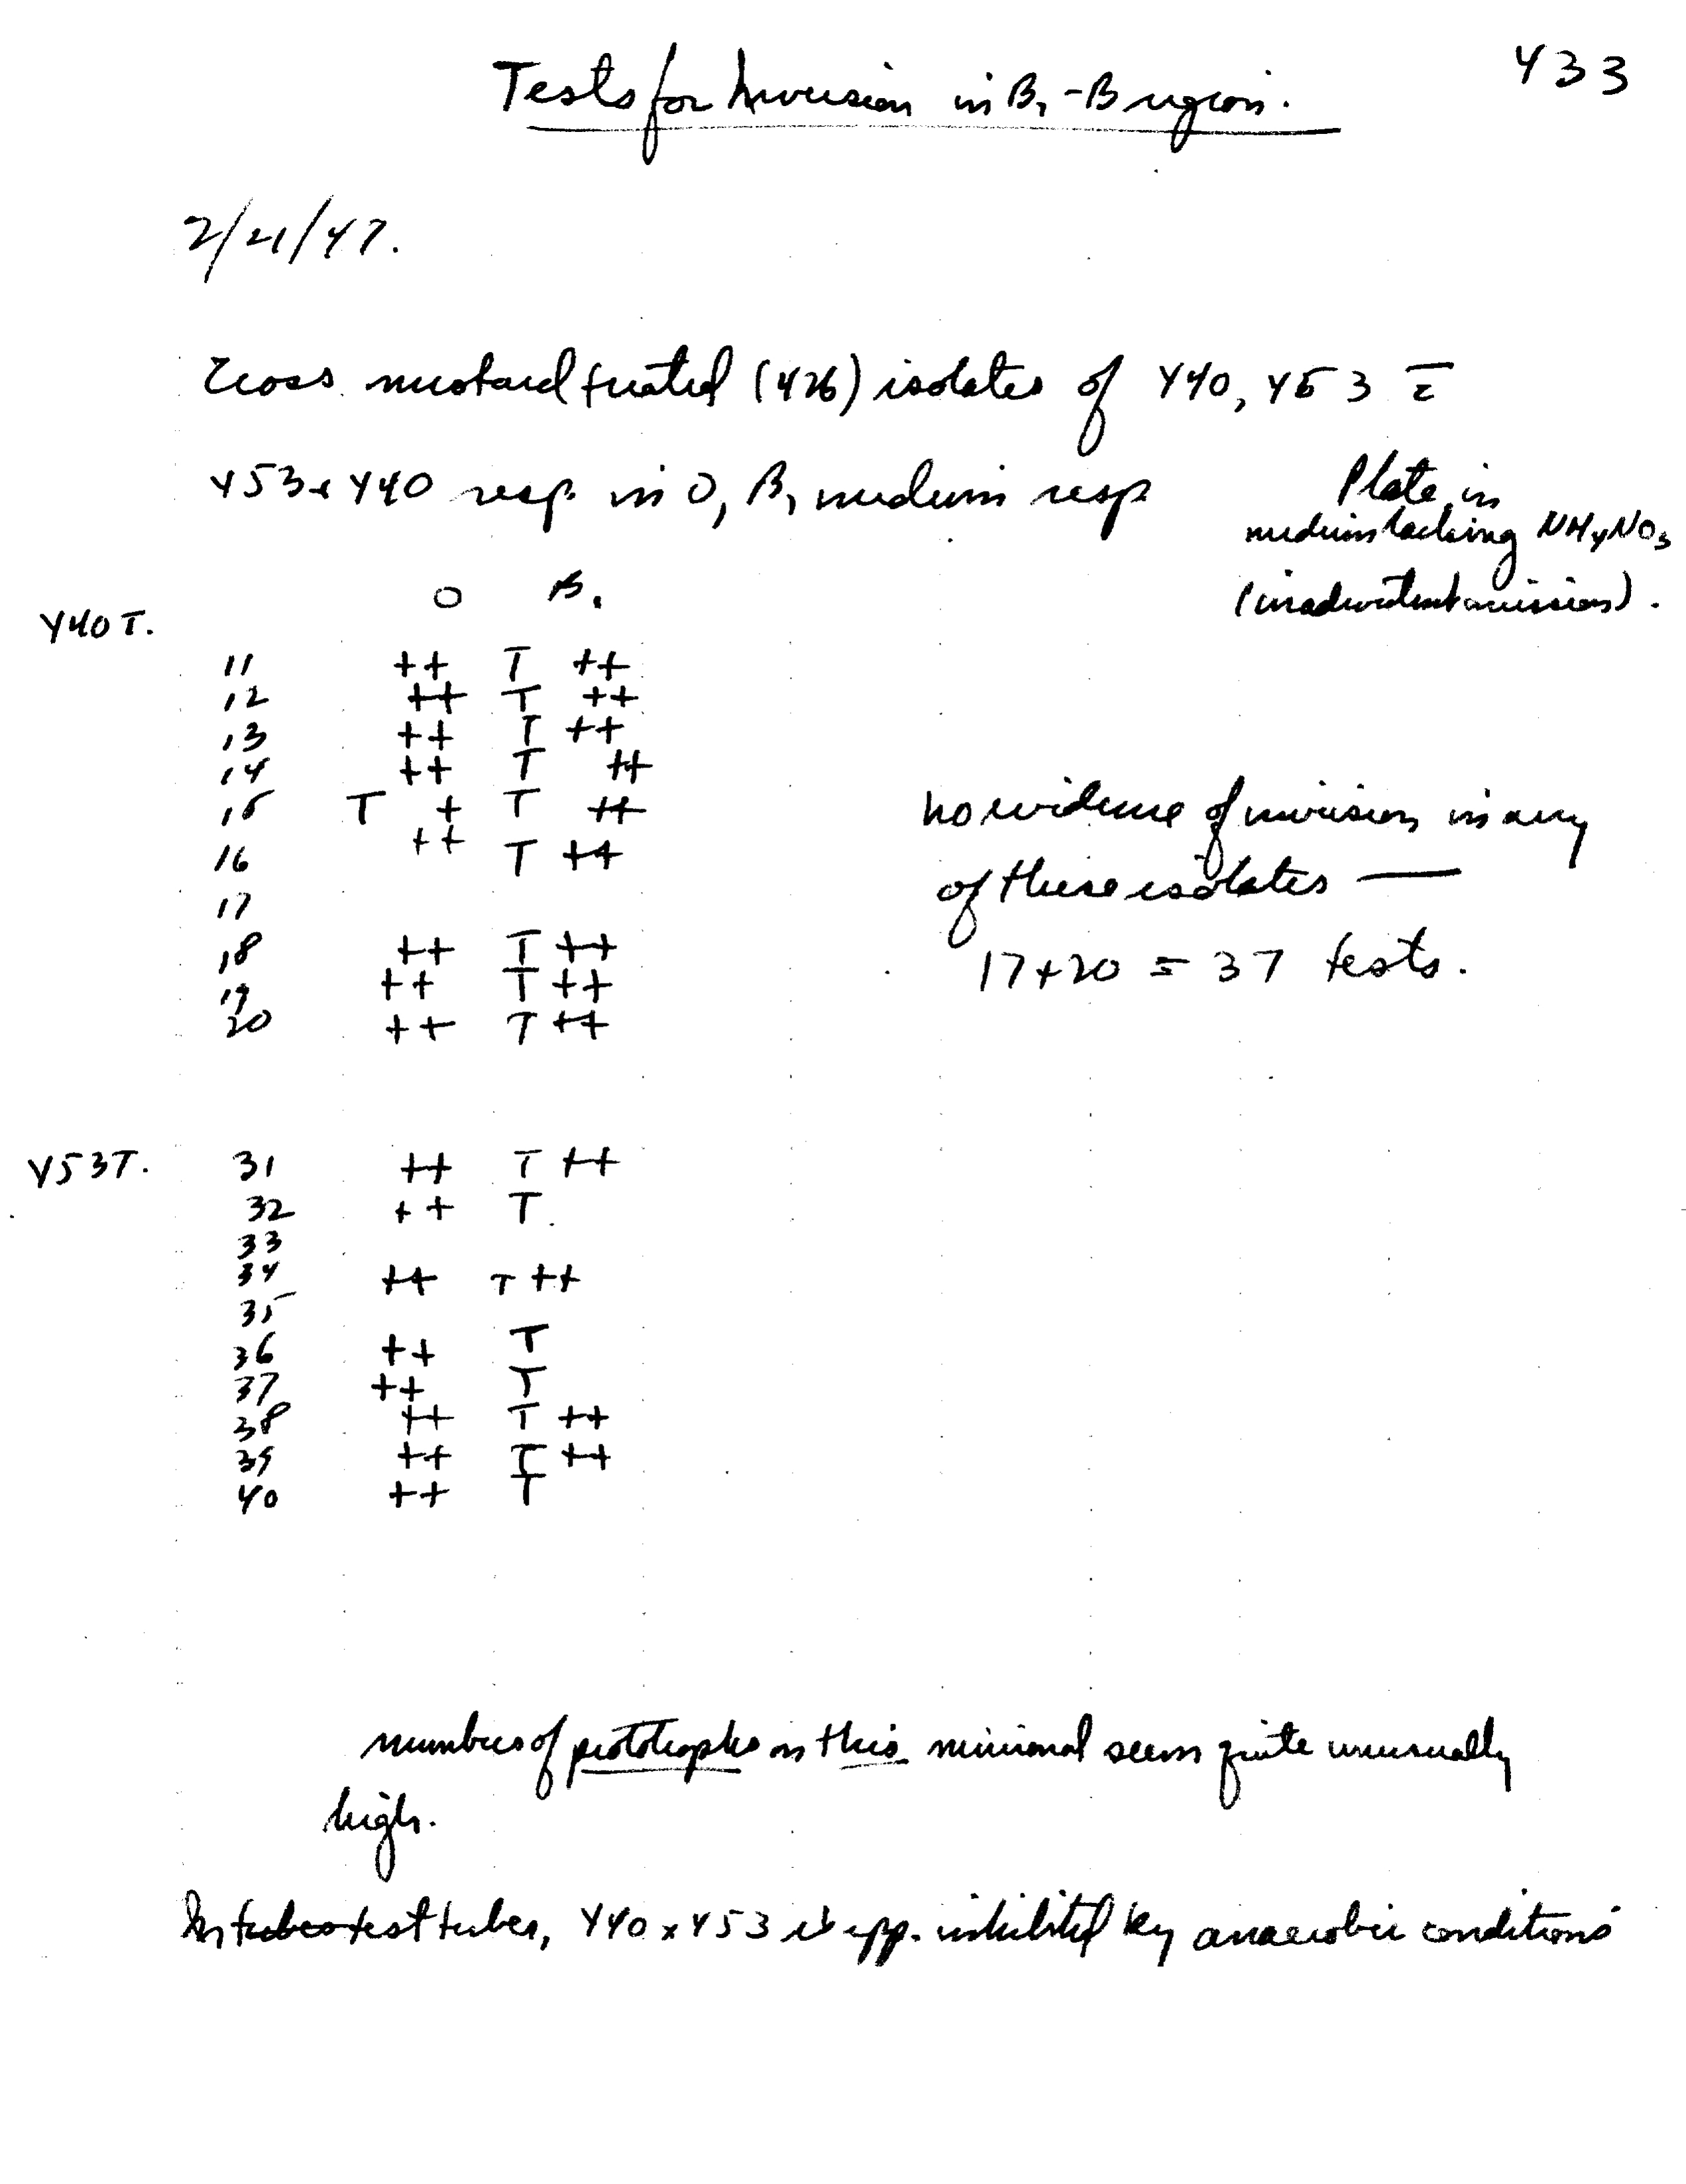 433
Tests for Inversion in B1-B region.
2/21/47.
Cross mustard treated (426) isolates of Y40, Y53 c̄
Y53 & Y40 resp. in O, B1 medium resp
Plate in
medium lacking NH4NO3
(inadvertent omission).
O B1
Y40T.
11 ++ T ++
12 ++ T ++
13 ++ T ++
14 ++ T ++
15 T + T ++
16 ++ T ++
17
18 ++ T ++
19 ++ T ++
20 ++ T ++
no evidence of inversion in any
of these isolates —
17+20 = 37 tests.
Y53T. 31 ++ T ++
32 ++ T
33
34 ++ T ++
35
36 ++ T
37 ++ T
38 ++ T ++
39 ++ T ++
40 ++ T
numbers of prototrophs on this minimal seem quite unusually
high.
In tubes test tubes, Y40 x Y53 is app. inhibited by anaerobic conditions